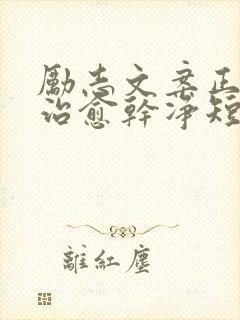 勵志文案正
治愈幹淨短
離紅塵